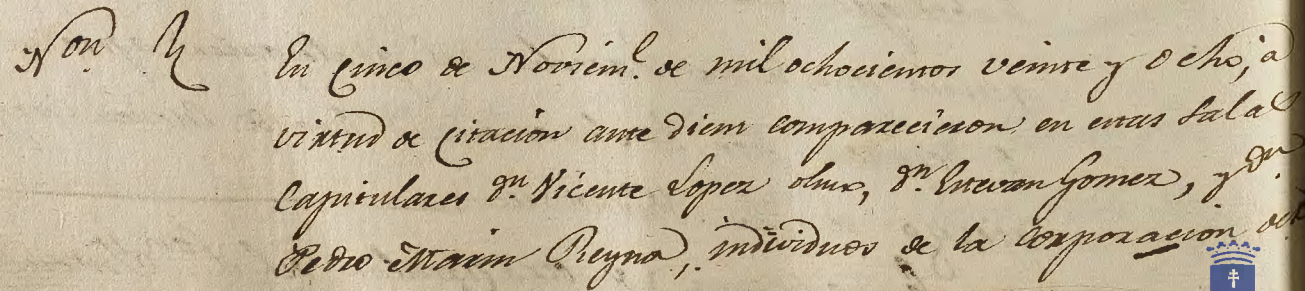 Non.
En cinco de Noviem.e de mil ochocientos veinte y ocho, a
virtud de citacion ante diem comparecieron en estas Salas
Capitulares Dn. Vicente Lopez, Dn. Estevan Gomez, y Dn.
Pedro Marin Reyna, individuos de la corporacion